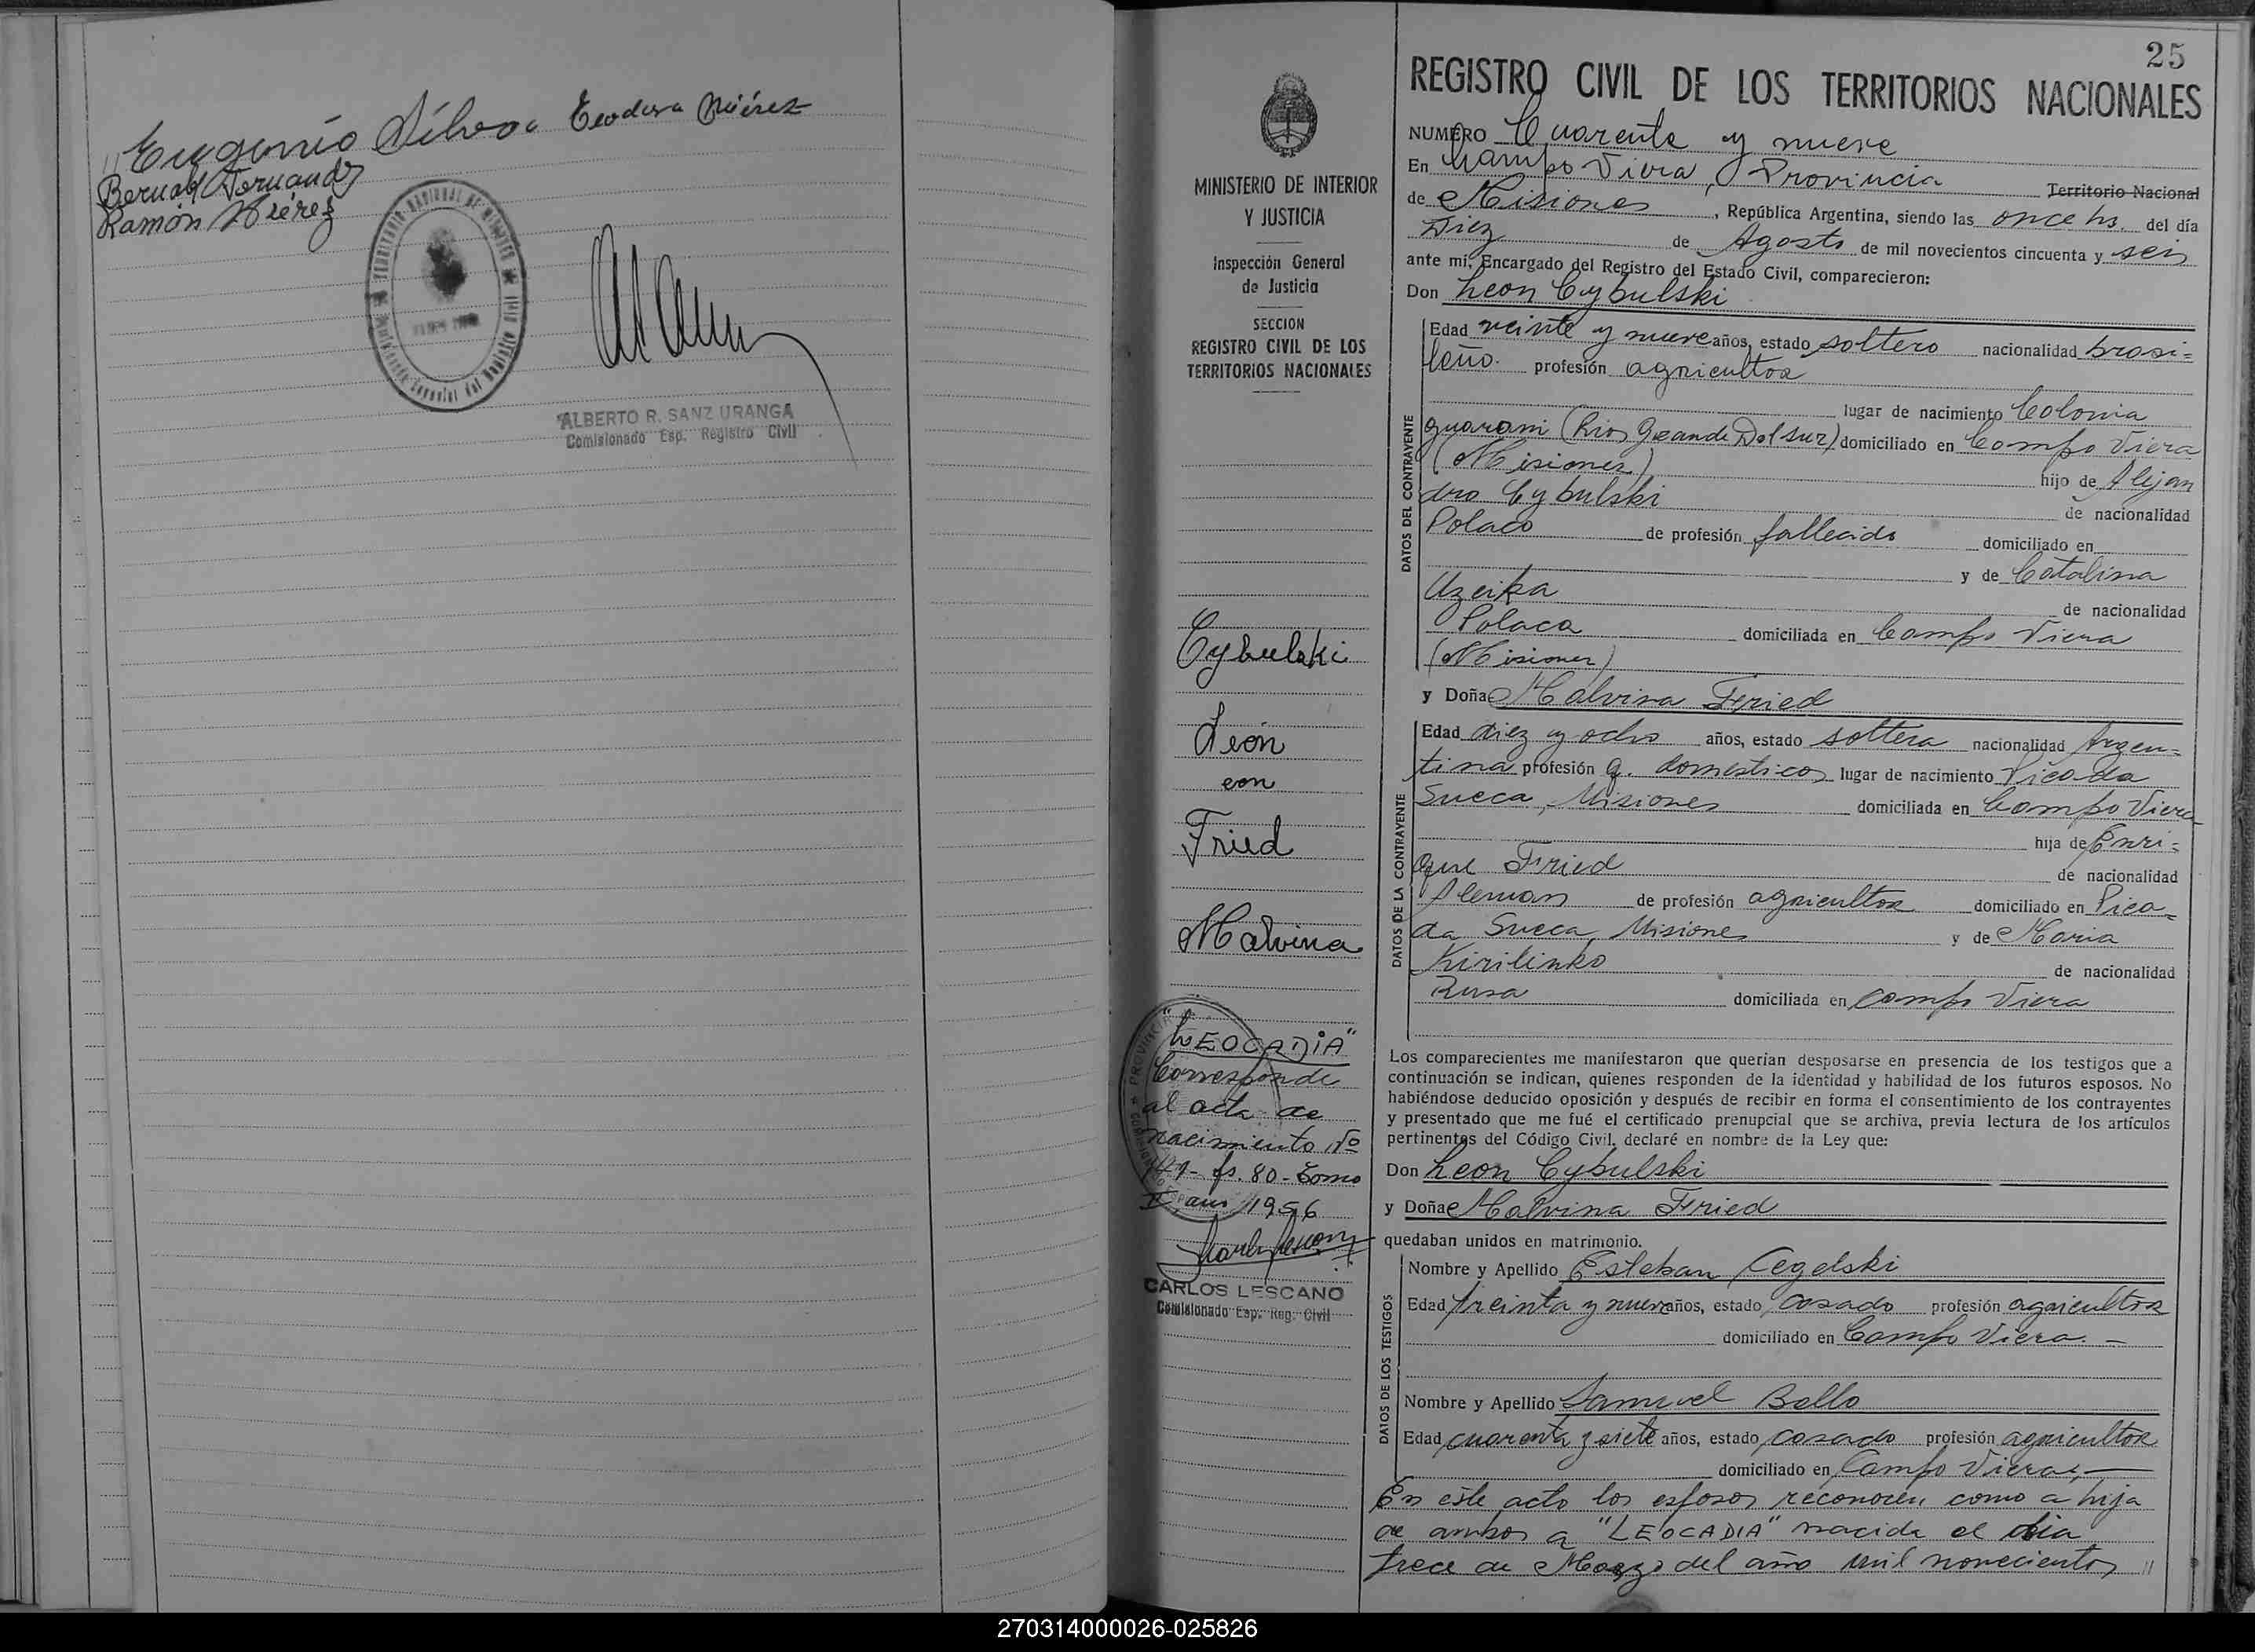 Eugenio Silva Teodora Niérez
Bernabé Fernandz
Ramón Niérez
ALBERTO R. SANZ URANGA
Comisionado Esp. Registro Civil
25
MINISTERIO DE INTERIOR
Y JUSTICIA
Inspección General
de Justicia
SECCION
REGISTRO CIVIL DE LOS
TERRITORIOS NACIONALES
Cybulski
León
con
Fried
Malvina
"LEOCADIA"
Corresponde
al acta de
nacimiento Nº
fs. 80 - Tomo
año 1956
CARLOS LESCANO
Comisionado Esp. Reg. Civil
REGISTRO CIVIL DE LOS TERRITORIOS NACIONALES
NUMERO Cuarenta y nueve
En Campo Viera, Provincia Territorio Nacional
de Misiones, República Argentina, siendo las once hs. del día
Diez de Agosto de mil novecientos cincuenta y seis
ante mí, Encargado del Registro del Estado Civil, comparecieron:
Don Leon Cybulski
DATOS DEL CONTRAYENTE
Edad veinte y nueve años, estado soltero nacionalidad brasi=
leño. profesión agricultor
lugar de nacimiento Colonia
guarani (Rio Grande Del Sur) domiciliado en Campo Viera
(Misiones)
hijo de Alejan
dro Cybulski
de nacionalidad
Polaco de profesión fallecido domiciliado en
y de Catalina
Uzeika
de nacionalidad
Polaca domiciliada en Campo Viera
(Misiones)
y Doña Malvina Fried
DATOS DE LA CONTRAYENTE
Edad diez y ocho años, estado soltera nacionalidad Argen=
tina profesión q. domesticos lugar de nacimiento Picada
Sueca, Misiones domiciliada en Campo Viera
hija de Enri=
que Fried
de nacionalidad
Aleman de profesión agricultor domiciliado en Pica=
da Sueca, Misiones y de Maria
Kirilinko
de nacionalidad
Rusa domiciliada en Campo Viera
Los comparecientes me manifestaron que querían desposarse en presencia de los testigos que a
continuación se indican, quienes responden de la identidad y habilidad de los futuros esposos. No
habiéndose deducido oposición y después de recibir en forma el consentimiento de los contrayentes
y presentado que me fué el certificado prenupcial que se archiva, previa lectura de los artículos
pertinentes del Código Civil, declaré en nombre de la Ley que:
Don Leon Cybulski
y Doña Malvina Fried
quedaban unidos en matrimonio.
DATOS DE LOS TESTIGOS
Nombre y Apellido Esteban Cegelski
Edad treinta y nueve años, estado casado profesión agricultor
domiciliado en Campo Viera. -
Nombre y Apellido Samuel Bello
Edad cuarenta y siete años, estado casado profesión agricultor
domiciliado en Campo Viera. -
En este acto los esposos reconocen como a hija
de ambos a "LEOCADIA" nacida el dia
trece de Marzo del año mil novecientos //
270314000026-025826